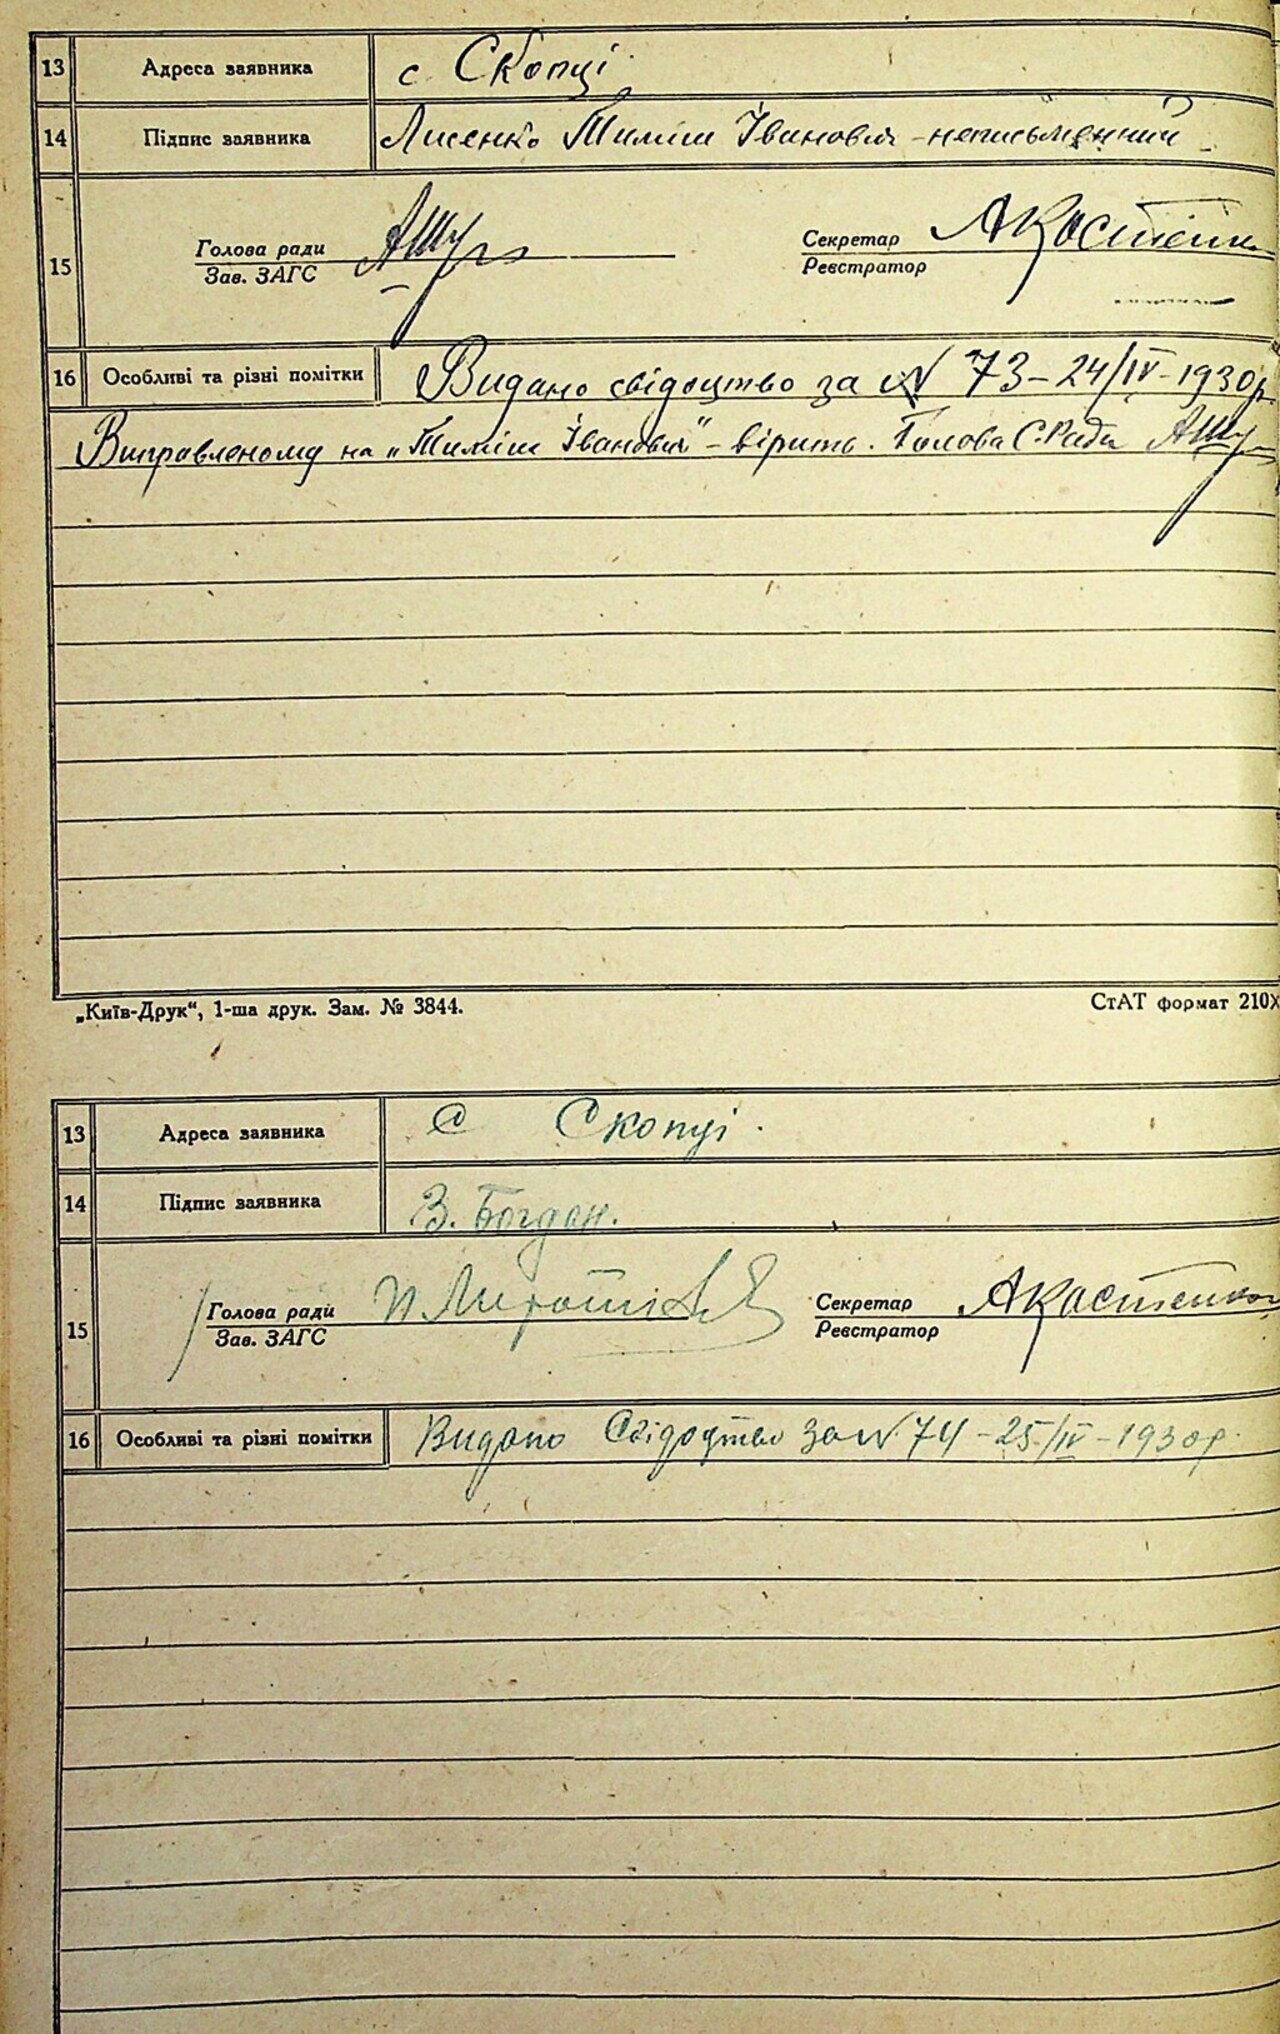 13 Адреса заявника с. Скопці
14 Підпис заявника Лисенко Тиміш Іванович - неписьменний
15 Голова ради Секретар АКостенко
Зав. ЗАГС Реєстратор
16 Особливі та різні помітки Видано свідоцтво за № 73 - 24/IV - 1930р.
Виправленому на „Тиміш Іванович" - вірить. Голова С.Ради
„Київ-Друк“, 1-ша друк. Зам. № 3844. СтАТ формат 210х
13 Адреса заявника с Скопці.
14 Підпис заявника З. Богдан.
15 Голова ради Секретар АКостенко
Зав. ЗАГС Реєстратор
16 Особливі та різні помітки Видано Свідоцтво за № 74 - 25/IV - 1930р.